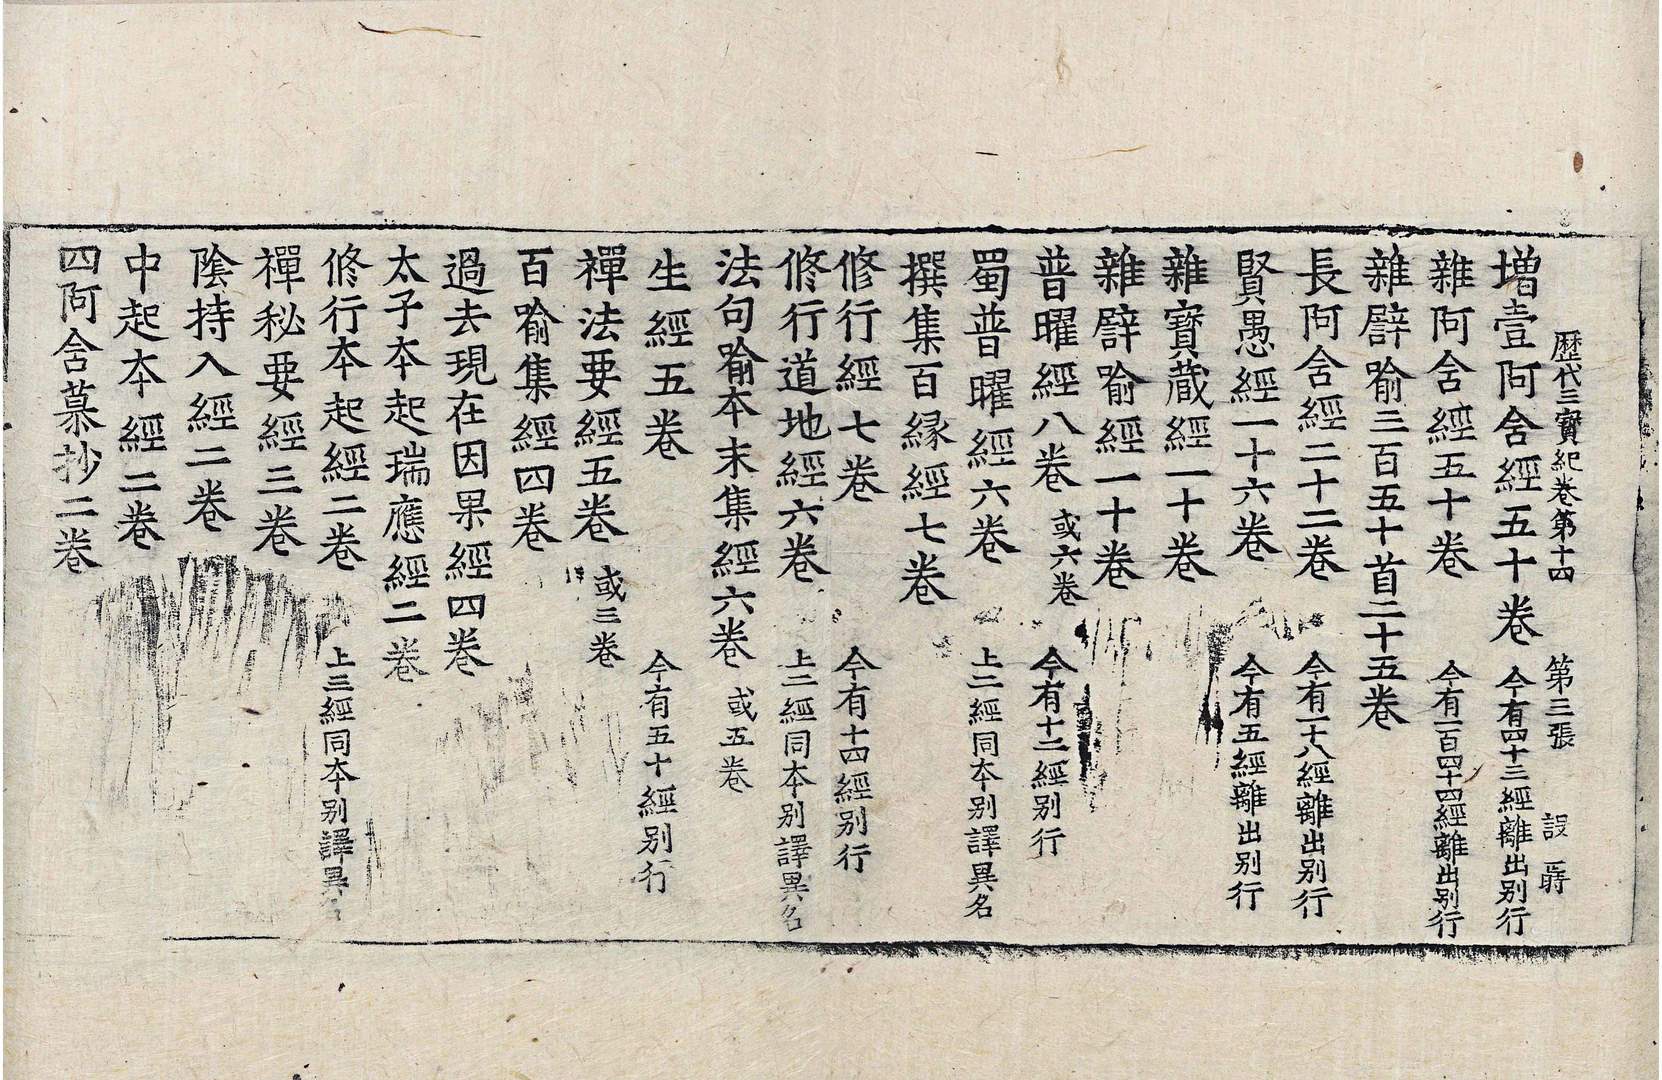 歷代三寶紀卷第十四 第三張 設
增壹阿含經五十卷 今有四十三經離出別行
雜阿含經五十卷 今有一百四十四經離出別行
雜譬喻三百五十首二十五卷
長阿含經二十二卷 今有一十八經離出別行
賢愚經一十六卷 今有五經離出別行
雜寶藏經一十卷
雜譬喻經一十卷
普曜經八卷 或六卷 今有十二經別行
蜀普曜經六卷 上二經同本別譯異名
撰集百緣經七卷
修行經七卷 今有十四經別行
修行道地經六卷 上二經同本別譯異名
法句喻本末集經六卷 或五卷
生經五卷 今有五十經別行
禪法要經五卷 或三卷
百喻集經四卷
過去現在因果經四卷
太子本起瑞應經二卷
修行本起經二卷 上三經同本別譯異名
禪秘要經三卷
陰持入經二卷
中起本經二卷
四阿含慕抄二卷